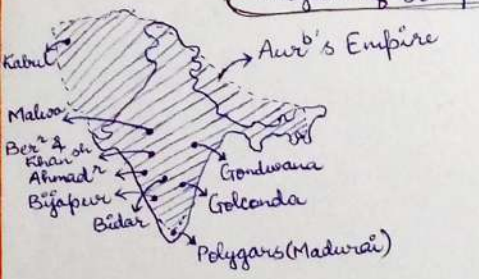 Kabul
Aurᵇ's Empire
Malwa
Berʳ &
Khansh
Ahmadʳ
Bijapur
Bidar
Gondwana
Golconda
Polygars (Madurai)